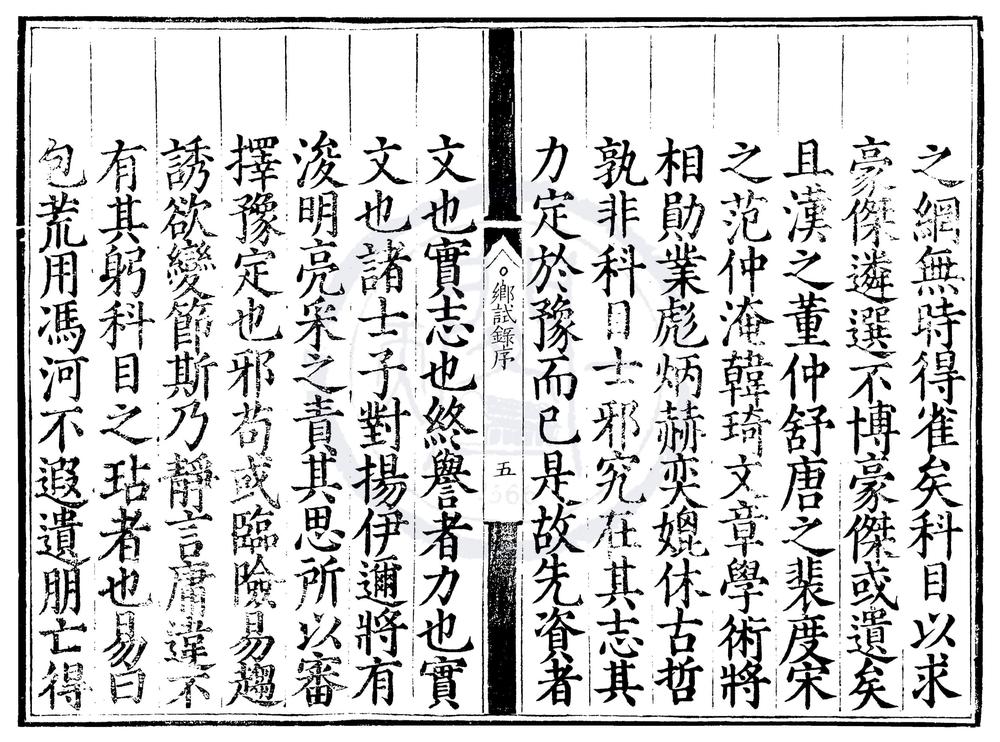 之網無時得雀矣科目以求
豪傑遴選不博豪傑或遺矣
且漢之董仲舒唐之裴度宋
之范仲淹韓琦文章學術將
相勛業彪炳赫奕媲休古哲
孰非科目士邪究在其志其
力定於豫而已是故先資者
鄉試錄序
五
文也實志也終譽者力也實
文也諸士子對揚伊邇將有
浚明亮采之責其思所以審
擇豫定也邪苟或臨險易趨
誘欲變節斯乃靜言庸違不
有其躬科目之玷者也易曰
包荒用馮河不遐遺朋亡得